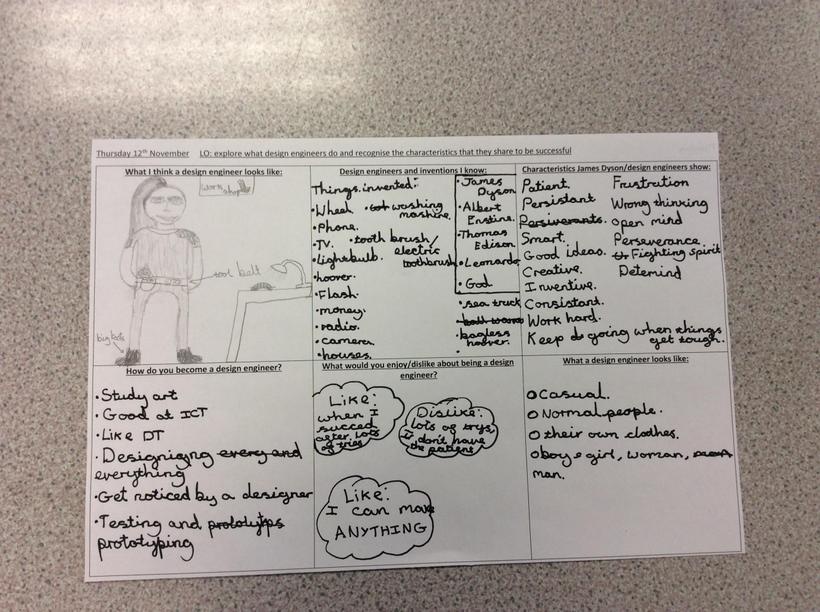 Thursday 12th November LO: explore what design engineers do and recognise the characteristics that they share to be successful
What I think a design engineer looks like:
Work shop
tool belt
big boots
Design engineers and inventions I know:
Things invented:
•Wheel
•washing
mashine.
•Phone.
•TV.
•tooth brush/
electric
toothbrush
•lightbulb.
•hoover.
•Flash
•money.
•radio.
•camera.
•houses.
•James
Dyson
•Albert
Enstins.
•Thomas
Edison
•Leonardo
•God
•sea truck
•ball
•bagless
hoover.
Characteristics James Dyson/design engineers show:
Patient.
Persistant
Perseverants.
Smart.
Good ideas.
Creative.
Inventive.
Consistant.
Work hard.
Keep going when things
get tough.
Frustration
Wrong thinking
open mind
Perseverance
Fighting spirit
Detemind
How do you become a design engineer?
•Study art
•Good at ICT
•Like DT
•Designigng every and
everything
•Get noticed by a designer
•Testing and prototyps
prototyping
What would you enjoy/dislike about being a design
engineer?
Like:
when I
succed
after lots
of tries
Dislike:
lots of trys,
I don't have
the patient
Like:
I can make
ANYTHING
What a design engineer looks like:
Casual.
Normal people.
their own clothes.
boy girl, woman,
man.